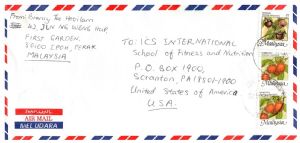 From:
42, JLN NG WENG HUP,
FIRST GARDEN.
IPOH, PERAK
MALAYSIA
TO: ICS INTERNATIONAL
School of Fitness and Nutrition
P.O. BOX 1900,
Scranton, PA 18501-1900
United States of America
U.S.A.
AIR MAIL
MEL UDARA
Malaysia
Malaysia
Malaysia